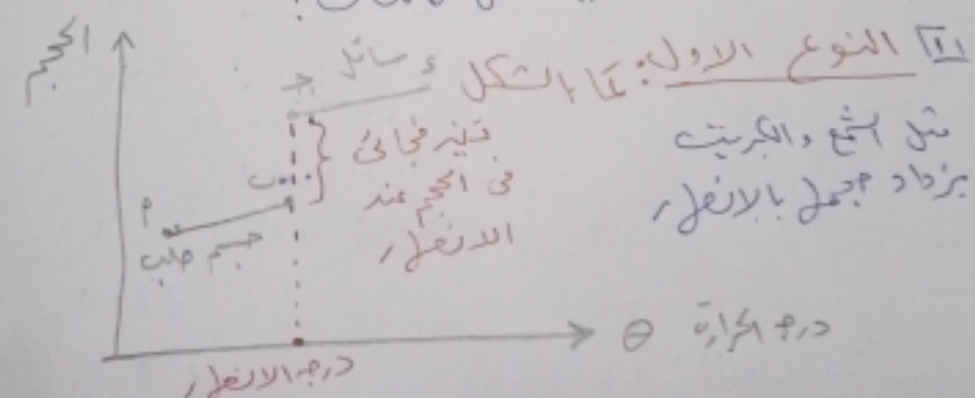 [١] النوع الاول: كما بالشكل
مثل الشمع والكبريت
يزداد حجمها بالانصهار
الحجم
ج سائل د
تغير فجائى
فى الحجم عند
الانصهار
ب
م
جسم صلب
θ درجه الحرارة
درجه الانصهار